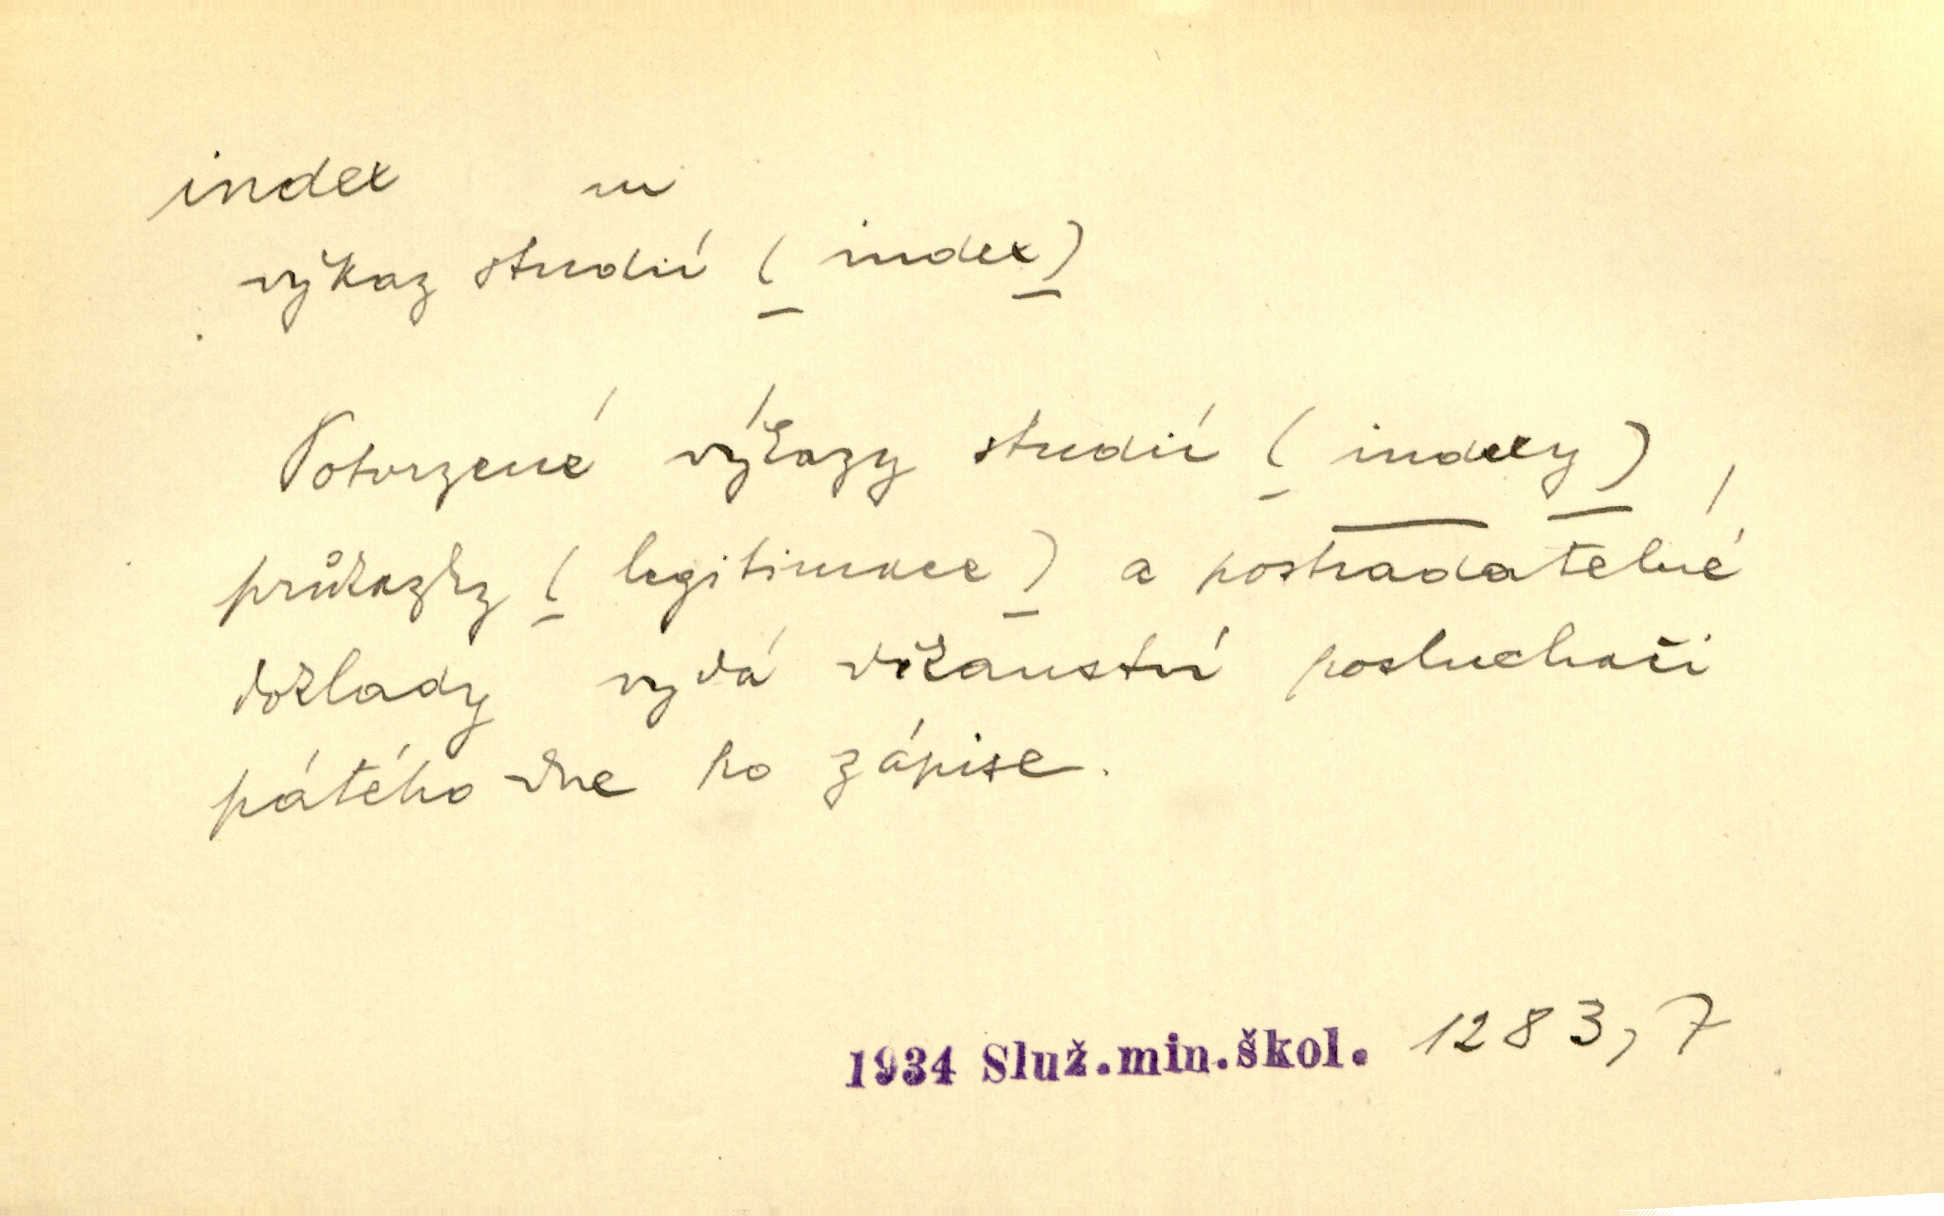 index m
výkaz studií (index)
Potvrzené výkazy studií (indexy),
průkazky (legitimace) a postradatelné
doklady vydá děkanství posluchači
pátého dne po zápise.
1934 Služ.min.škol. 1283,7